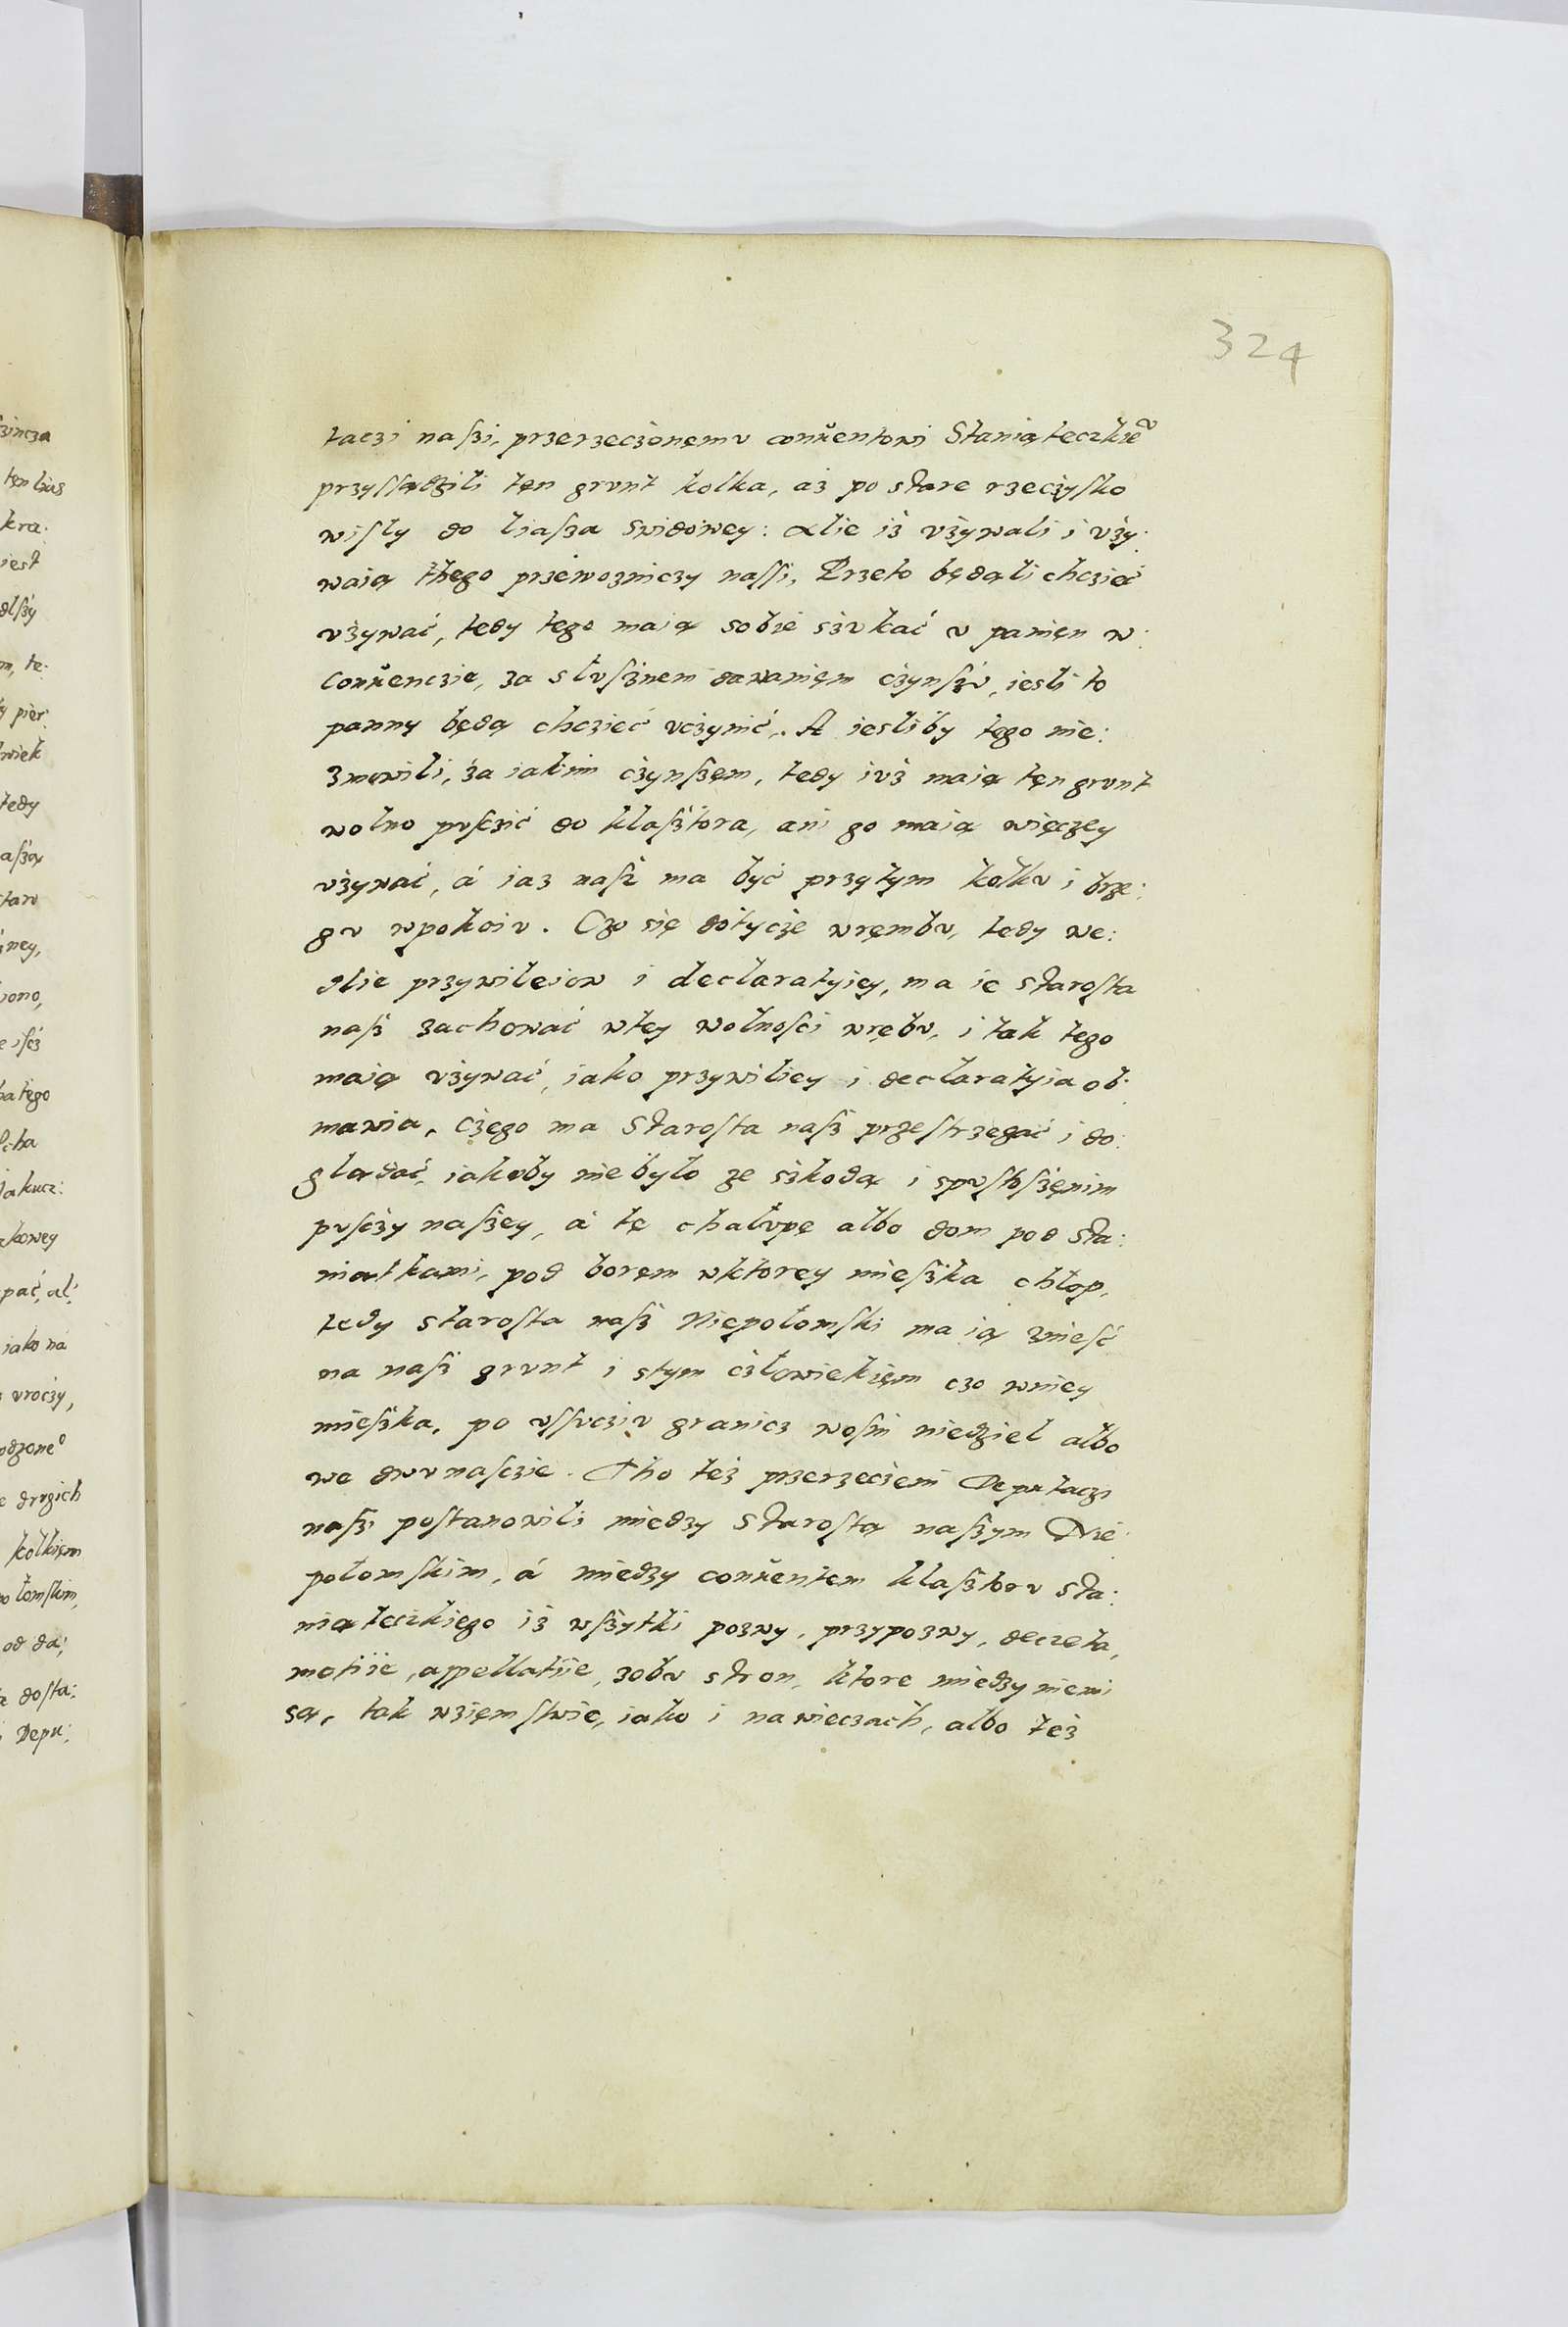 324
taczi naſzi, przerzeczonęmu conuentowi Staniąteczkie°
przyſſądzili tęn grunt kolka, aż po stare rzeczyſko
wiſly do liaſza Swidowey: Alie iż vżywali i vży:
waią thego przewozniczy naſſi, Przeto będąli chczieć
vżywać, tedy tego maią sobie szukać u panięn w:
Conuenczie, za sluſznem dawanięm czynſzu, iesli to
panny będą chczieć uczynić. A iesliby tego nie:
zmowili, za iakim czynſzęm, tedy iuż maią tęn grunt
wolno puſczić do klaſztora, ani go maią więczey
vżywać, á iaz naſz ma być przytym kolku i brze:
gu wpokoiu. Czo się dotycze wrębu, tedy we:
dlie przywileiow i declaratyiey, ma ie Staroſta
naſz zachować wtey wolnoſci wrębu, i tak tego
maią vżywać, iako przywiliey i declaratyia ob:
mawia, czego ma Staroſta naſz przeſtrzegać i do:
glądać, iakoby nie było ze szkodą i spuſtoſzęnim
puſczy naſzey, á tę chalupę albo dom pod Sta:
niatkami, pod boręm wktorey mieſzka chłop,
tedy staroſta naſz Niepołomſki ma ią znieſć
na naſz grunt i stym człowiekięm czo wniey
mieſzka, po uſſuciu granicz woſm niedziel albo
we dwunaſczie. Tho też przerzeczeni Deputaczi
naſzi poſtanowili miedzy Staroſtą naſzym Nie:
połomſkim, á miedzy conuentem klaſztoru Sta:
niąteczkiego iż wſzytki pozwy, przypozwy, decreta,
motiie, appellatiie, zobu stron, ktore miedzy niemi
są, tak wziemſtwie, iako i nawieczach, albo też